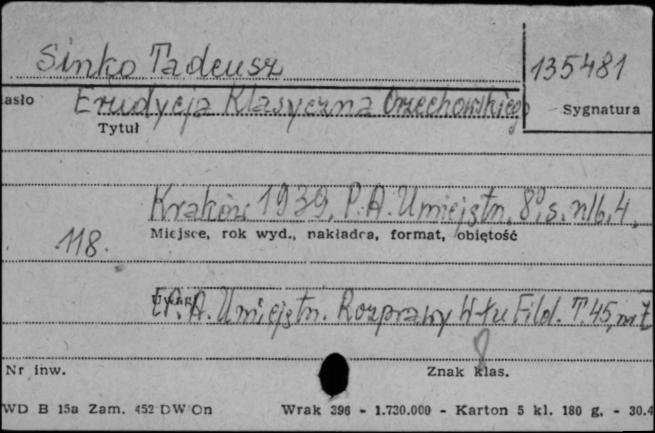 Sinko Tadeusz
135481
asło
Erudycja Klasyczna Orzechowskiego
Sygnatura
Tytuł
Kraków 1939. P.A.Umiejętn. 8°, s. nlb. 4,
118.
Miejsce, rok wyd., nakładca, format, objętość
Uwagi
[P.A. Umiejętn. Rozprawy W-łu Filol. T.45, nr 7
8
Nr inw.
Znak klas.
WD B 15a Zam. 452 DW On
Wrak 396 - 1.730.000 - Karton 5 kl. 180 g. - 30.4